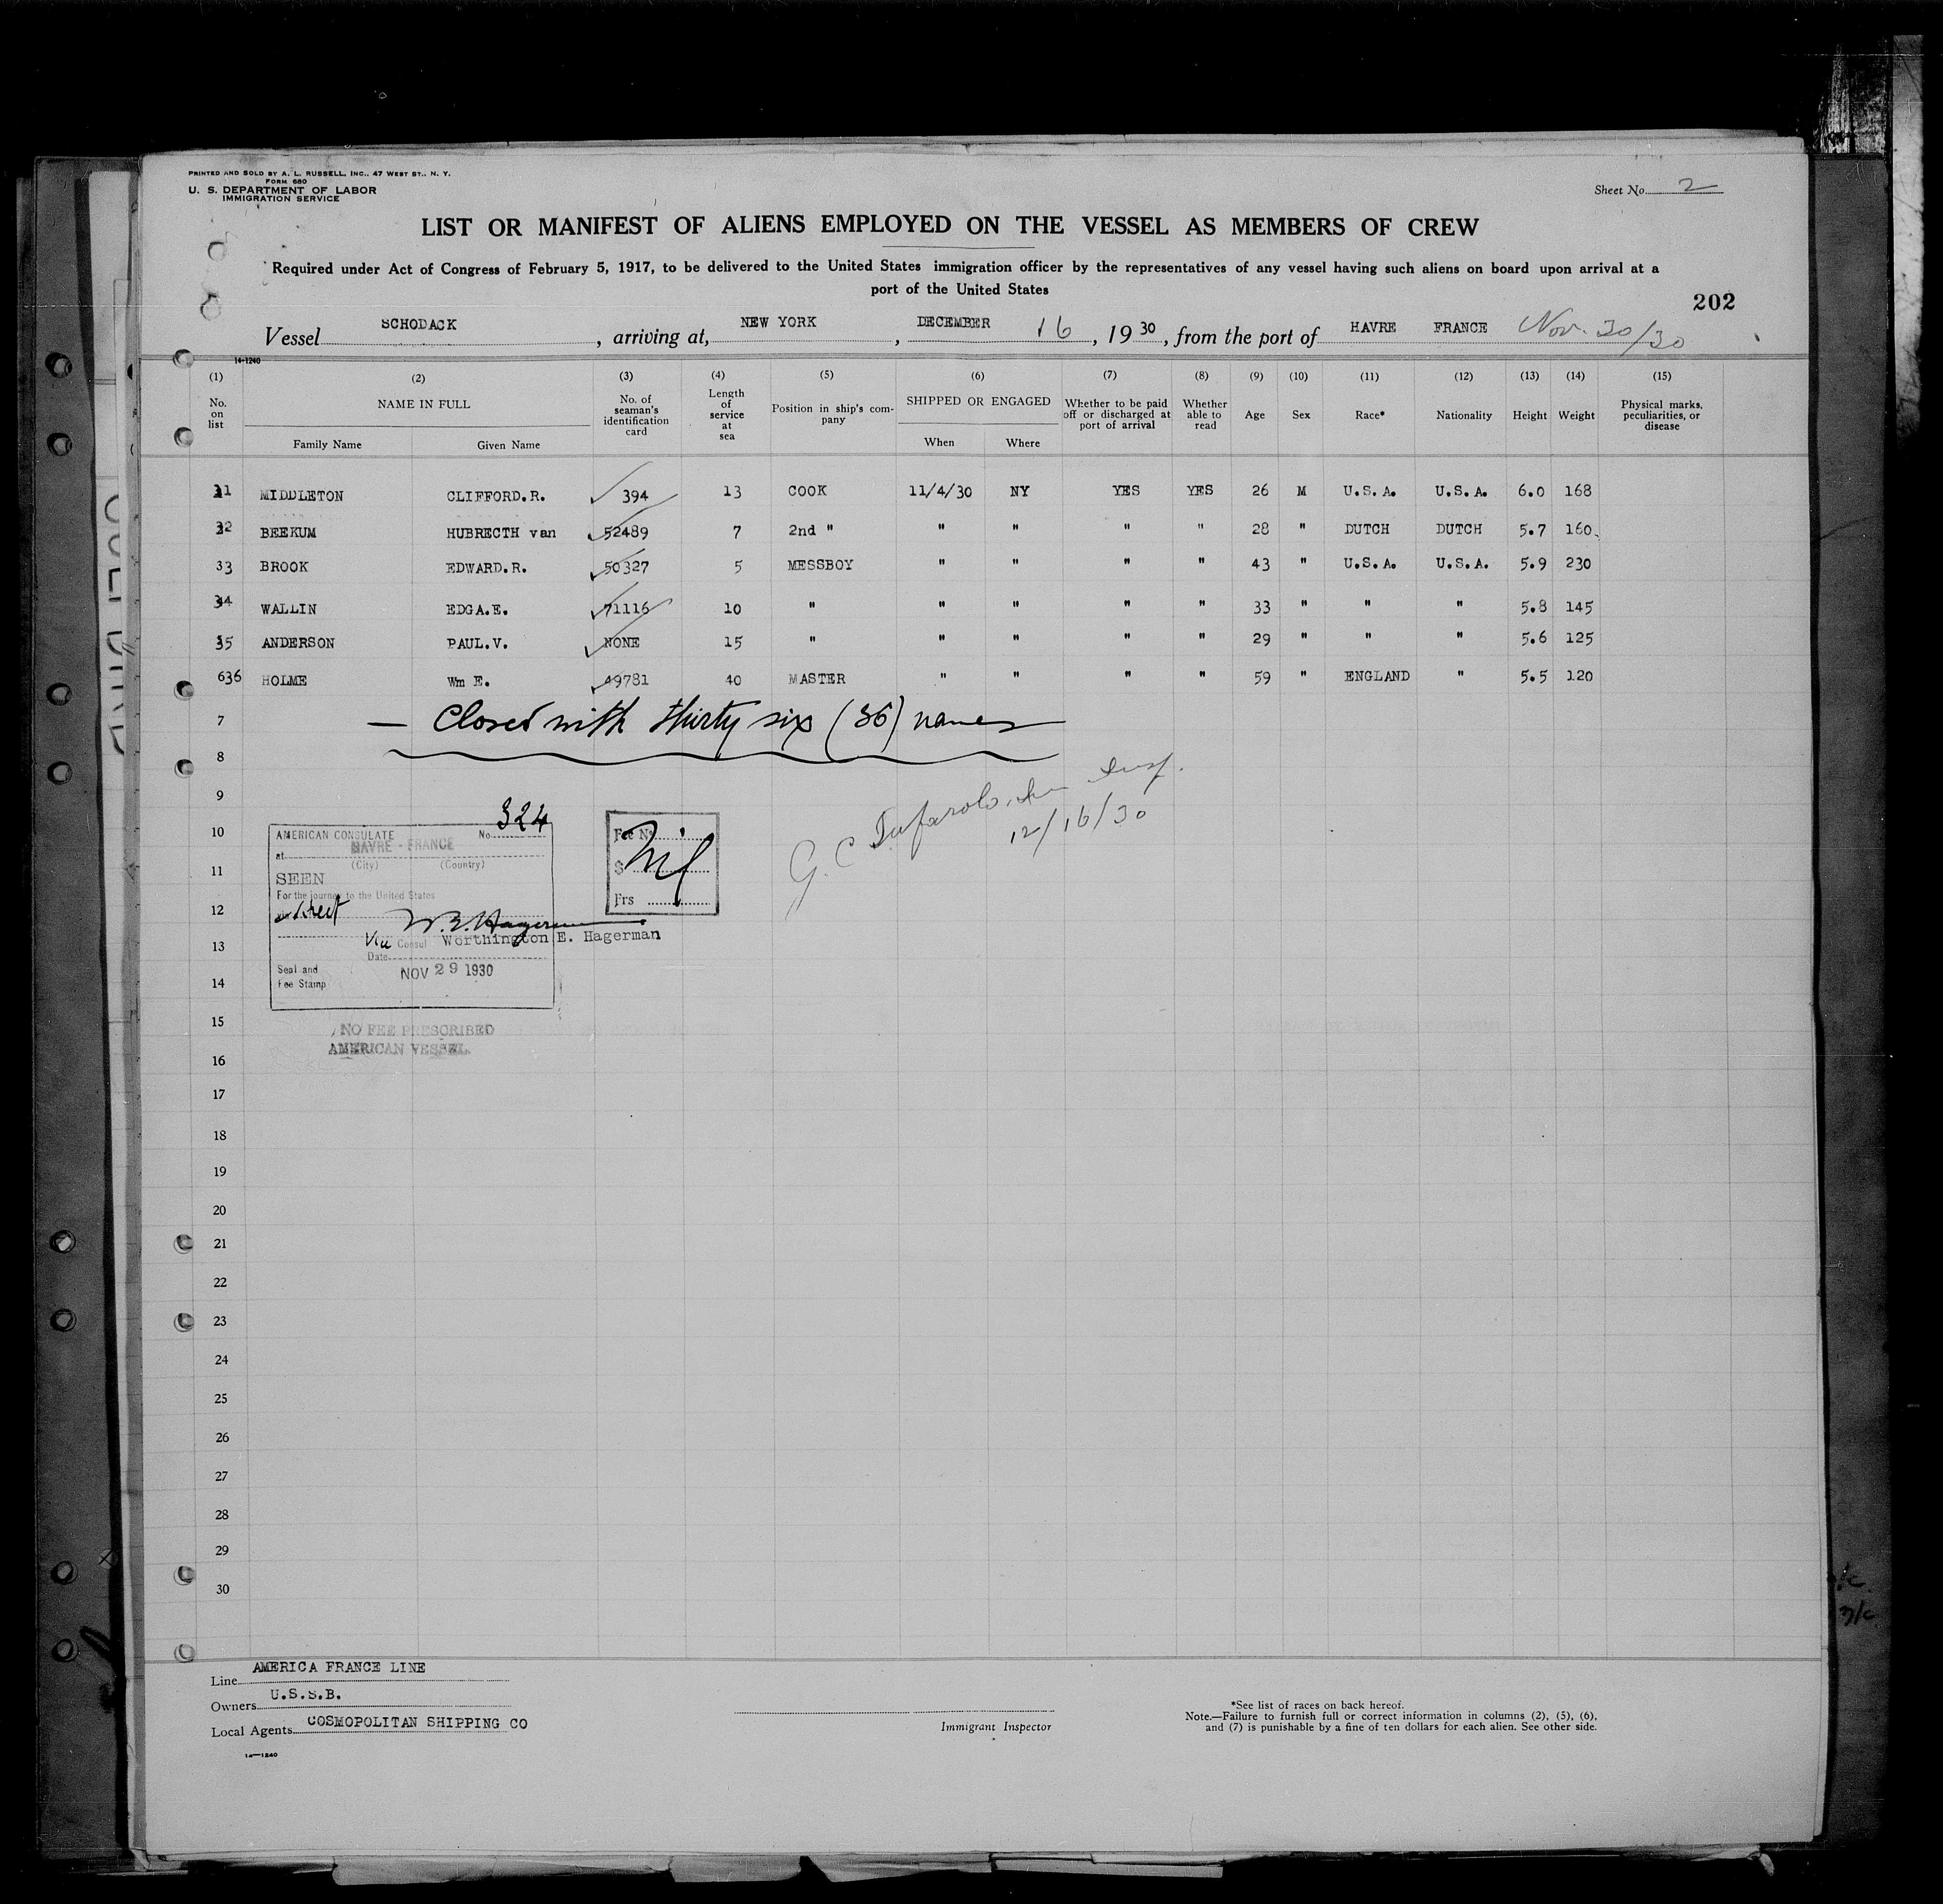 PRINTED AND SOLD BY A. L. RUSSELL, INC., 47 WEST ST., N. Y.
FORM 680
U. S. DEPARTMENT OF LABOR
IMMIGRATION SERVICE
Sheet No. 2
LIST OR MANIFEST OF ALIENS EMPLOYED ON THE VESSEL AS MEMBERS OF CREW
Required under Act of Congress of February 5, 1917, to be delivered to the United States immigration officer by the representatives of any vessel having such aliens on board upon arrival at a
port of the United States
202
Vessel SCHODACK, arriving at, NEW YORK, DECEMBER 16, 1930, from the port of HAVRE FRANCE Nov. 30/30
14-1240
(1) (2) (3) (4) (5) (6) (7) (8) (9) (10) (11) (12) (13) (14) (15)
No. on list NAME IN FULL Family Name Given Name No. of seaman's identification card Length of service at sea Position in ship's company SHIPPED OR ENGAGED When Where Whether to be paid off or discharged at port of arrival Whether able to read Age Sex Race* Nationality Height Weight Physical marks, peculiarities, or disease
31 MIDDLETON CLIFFORD.R. 394 13 COOK 11/4/30 NY YES YES 26 M U.S.A. U.S.A. 6.0 168
32 BEEKUM HUBRECTH van 52489 7 2nd " " " " " 28 " DUTCH DUTCH 5.7 160
33 BROOK EDWARD.R. 50327 5 MESSBOY " " " " 43 " U.S.A. U.S.A. 5.9 230
34 WALLIN EDGA.E. 71116 10 " " " " " 33 " " " 5.8 145
35 ANDERSON PAUL.V. NONE 15 " " " " " 29 " " " 5.6 125
636 HOLME Wm E. 49781 40 MASTER " " " " 59 " ENGLAND " 5.5 120
7 — Closed with thirty six (36) names
8
9
10
11
12
13
14
15
16
17
18
19
20
21
22
23
24
25
26
27
28
29
30
AMERICAN CONSULATE No. 324
at HAVRE - FRANCE
(City) (Country)
SEEN
For the journey to the United States
direct
W. E. Hagerman
Vice Consul Worthington E. Hagerman
Date
NOV 29 1930
Seal and
Fee Stamp
NO FEE PRESCRIBED
AMERICAN VESSEL
Fee No.
$ Nil
Frs
G. C. Insp.
12/16/30
Line AMERICA FRANCE LINE
Owners U.S.S.B.
Local Agents COSMOPOLITAN SHIPPING CO
14—1240
Immigrant Inspector
*See list of races on back hereof.
Note.—Failure to furnish full or correct information in columns (2), (5), (6),
and (7) is punishable by a fine of ten dollars for each alien. See other side.